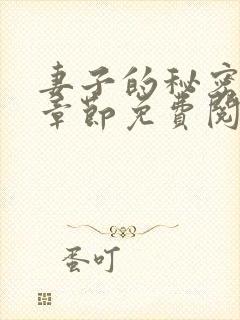 妻子的秘密
章节免费阅
蛋叮